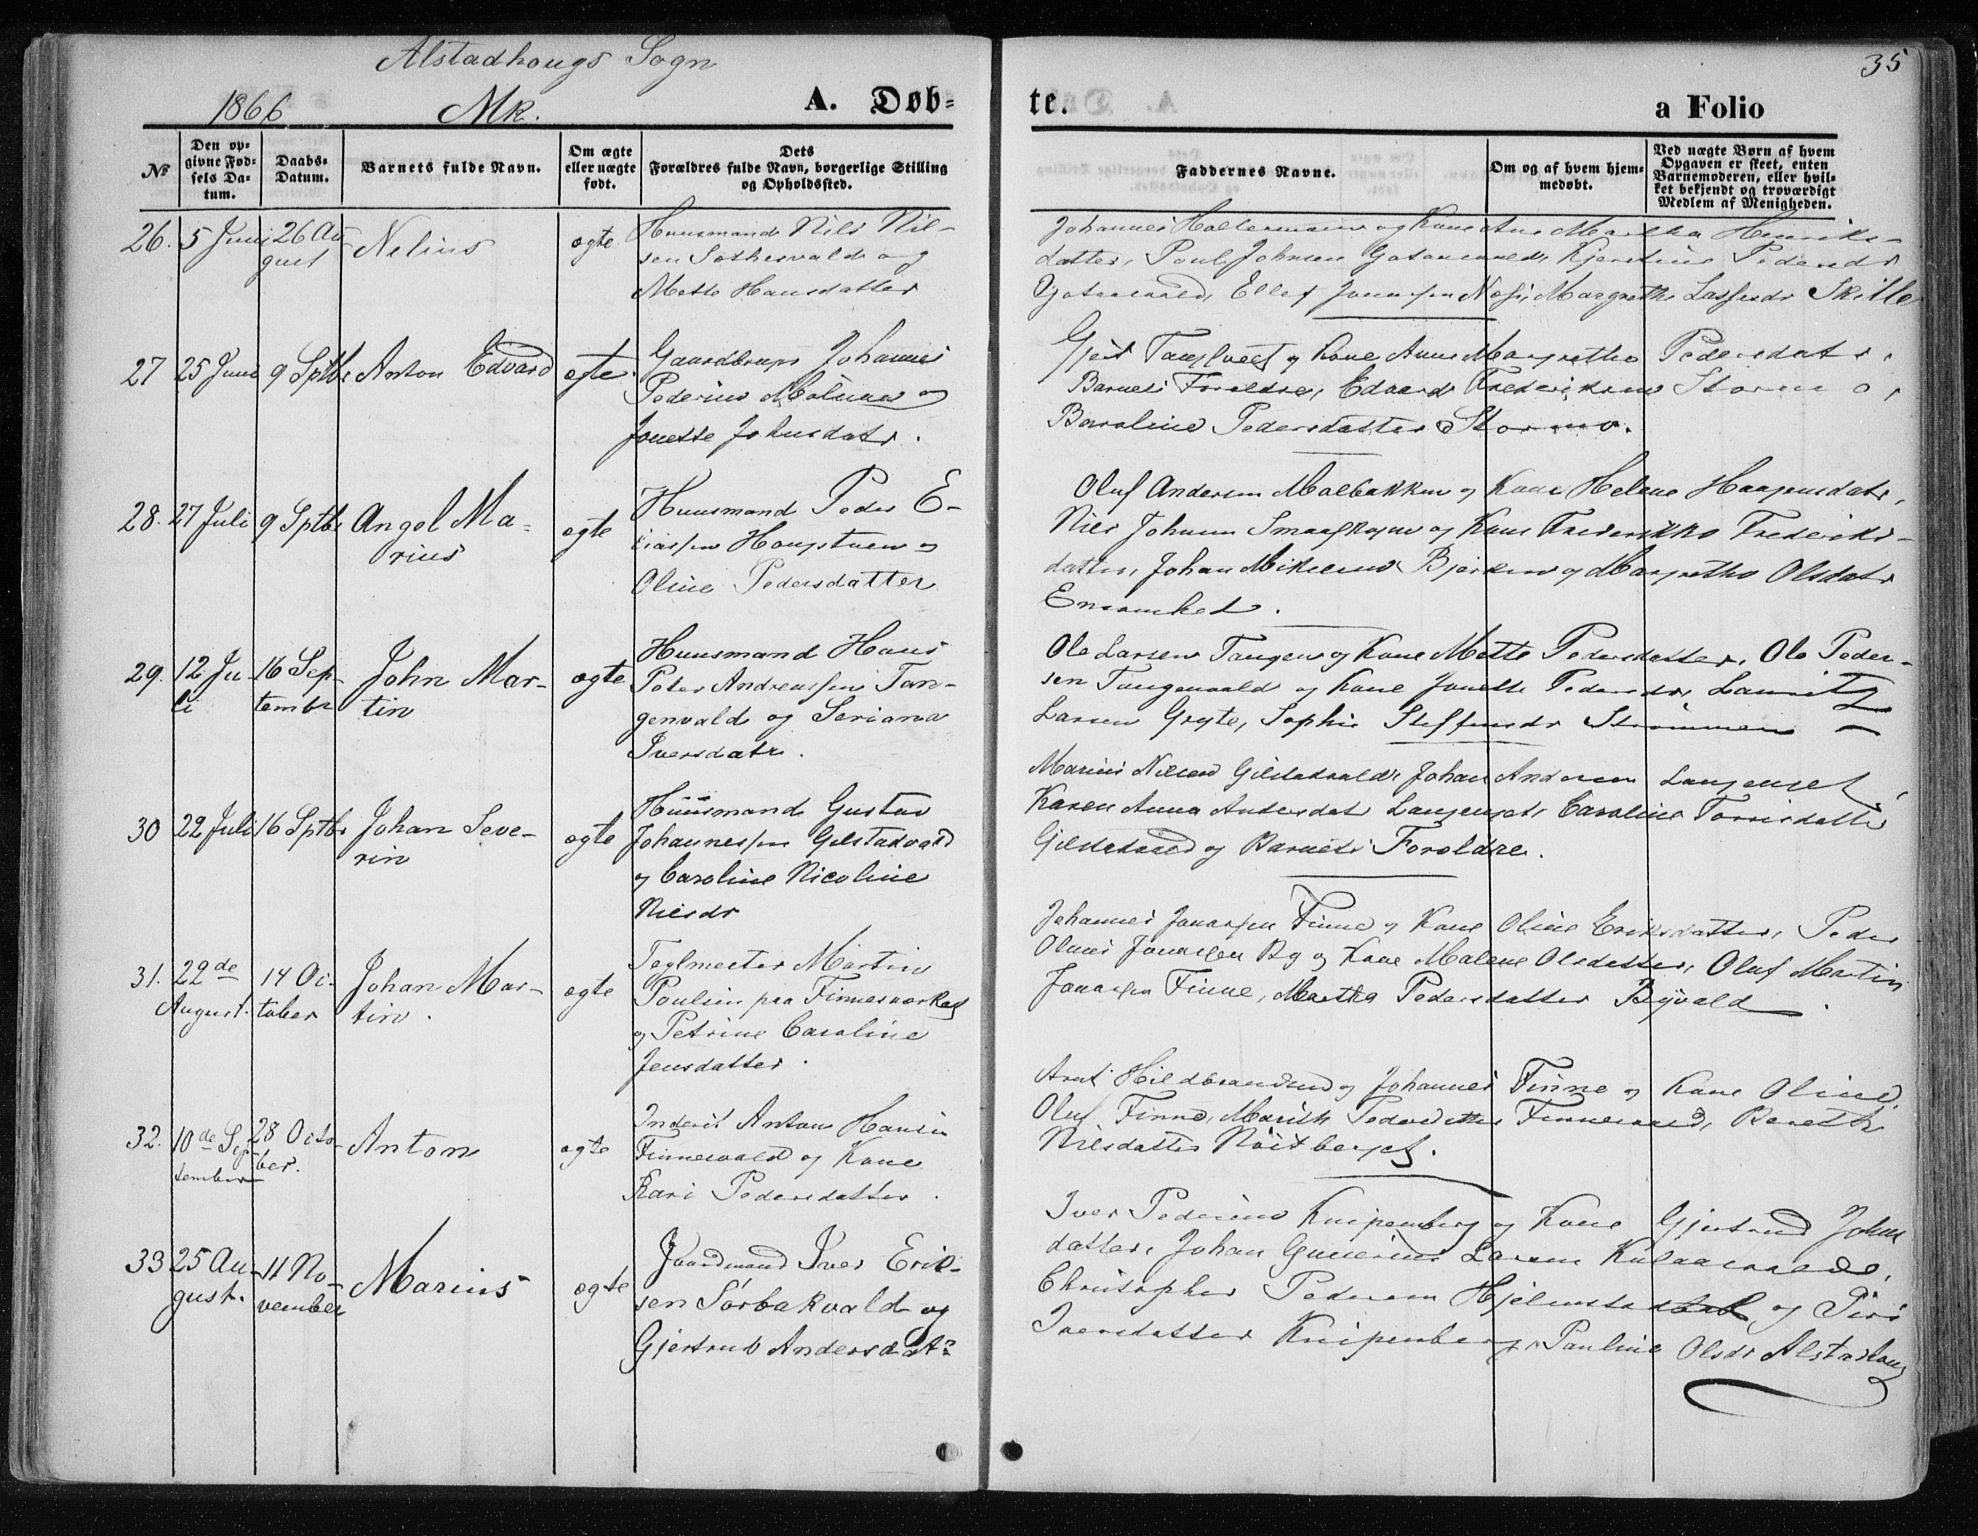 Alstadhougs Sogn
35
1866
Mk.
A. Døb=
te.
a Folio
No
Den op-
givne Fød-
sels Da-
tum.
Daabs-
Datum.
Barnets fulde Navn.
Om ægte
eller uægte
født.
Dets
Forældres fulde Navn, borgerlige Stilling
og Opholdssted.
Faddernes Navne.
Om og af hvem hjem-
medøbt.
Ved uægte Børn af hvem
Opgaven er skeet, enten
Barnemoderen, eller hvil-
ket bekjendt og troværdigt
Medlem af Menigheden.
26. 5 Juni
26 Au-
gust
Nelius
ægte
Huusmand Nils Nil-
sen og
Mette Hansdatter
Johannes Haltermann og Kone Ane Martha Henriks-
datter, Poul Johnsen Kjerstine Pedersdr
Ellef Jonassen Næss, Margrethe Lassesdr Skille
27 25 Juni
9 Sptbr
Anton Edvard
ægte
Gaardbruger Johannes
Pederius og
Jonette Johnsdatr.
og Kone Anne Margrethe Pedersdatr,
Barnets Foreldre, Edvard Frederiksen Stormo,
Baroline Pedersdatter Stormo.
28. 27 Juli
9 Sptbr
Angel Ma-
rius
ægte
Huusmand Peder E-
liassen Hougstuen og
Oline Pedersdatter
Oluf Andersen Malbakken og Kone Helene Haagensdatr,
Nils Johnsen og Kone Frederikke Frederiks-
datter, Johan Mikelsen Bjerken og Margrethe Olsdatr
Ensomhed.
29. 12 Ju-
li
16 Sep-
tembr
John Mar-
tin
ægte
Huusmand Hans
Peter Andreassen Tan-
genvald og Seriana
Iversdatr.
Ole Larsen Tangen og Kone Mette Pedersdatter, Ole Peder-
sen Tangenvald og Kone Jonette Pedersdr, Lauritz
Larsen Gryte, Sophie Steffensdr Strømmen
30 22 Juli
16 Sptbr
Johan Seve-
rin
ægte
Huusmand Gustav
Johannessen Gilstadvald
og Caroline Nicoline
Nilsdr
Marius Nilsen Gilstadvald, Johan Andersen Langenget,
Karen Anna Andersdat Langenget, Caroline Torrisdatter
Gilstadvald og Barnets Foreldre.
31. 22de
August.
14 Oc-
tober
Johan Mar-
tin.
ægte
Teglmester Martin
Poulsen paa Finnesværket
og Petrine Caroline
Jensdatter.
Johannes Jonassen Finne og Kone Oline Eriksdatter, Peder
Olaus Jonassen By og Kone Malene Olsdatter, Oluf Martin
Jonassen Finne, Martha Pedersdatter Byvald.
32. 10de Sep-
tember
28 Octo-
ber.
Anton
ægte
Inderst Anton Hansen
Finnesvald og Kone
Kari Pedersdatter.
Arnt Hildbrandsen og Johannes Finne og Kone Oline,
Oluf Finne, Marith Pedersdatter Finnesvald, Bereth
Nilsdatter
33 25 Au-
gust.
11 No-
vember
Marius
ægte
Gaardmand Iver Erik-
sen Sørbakvald og
Gjertrud Andersdatr
Iver Pedersen Knipenberg og Kone Gjertrud Johns-
datter, Johan Gunerius Larsen
Christopher Pedersen og Siri
Iversdatter Knipenberg, Pauline Olsdr Alstadhoug